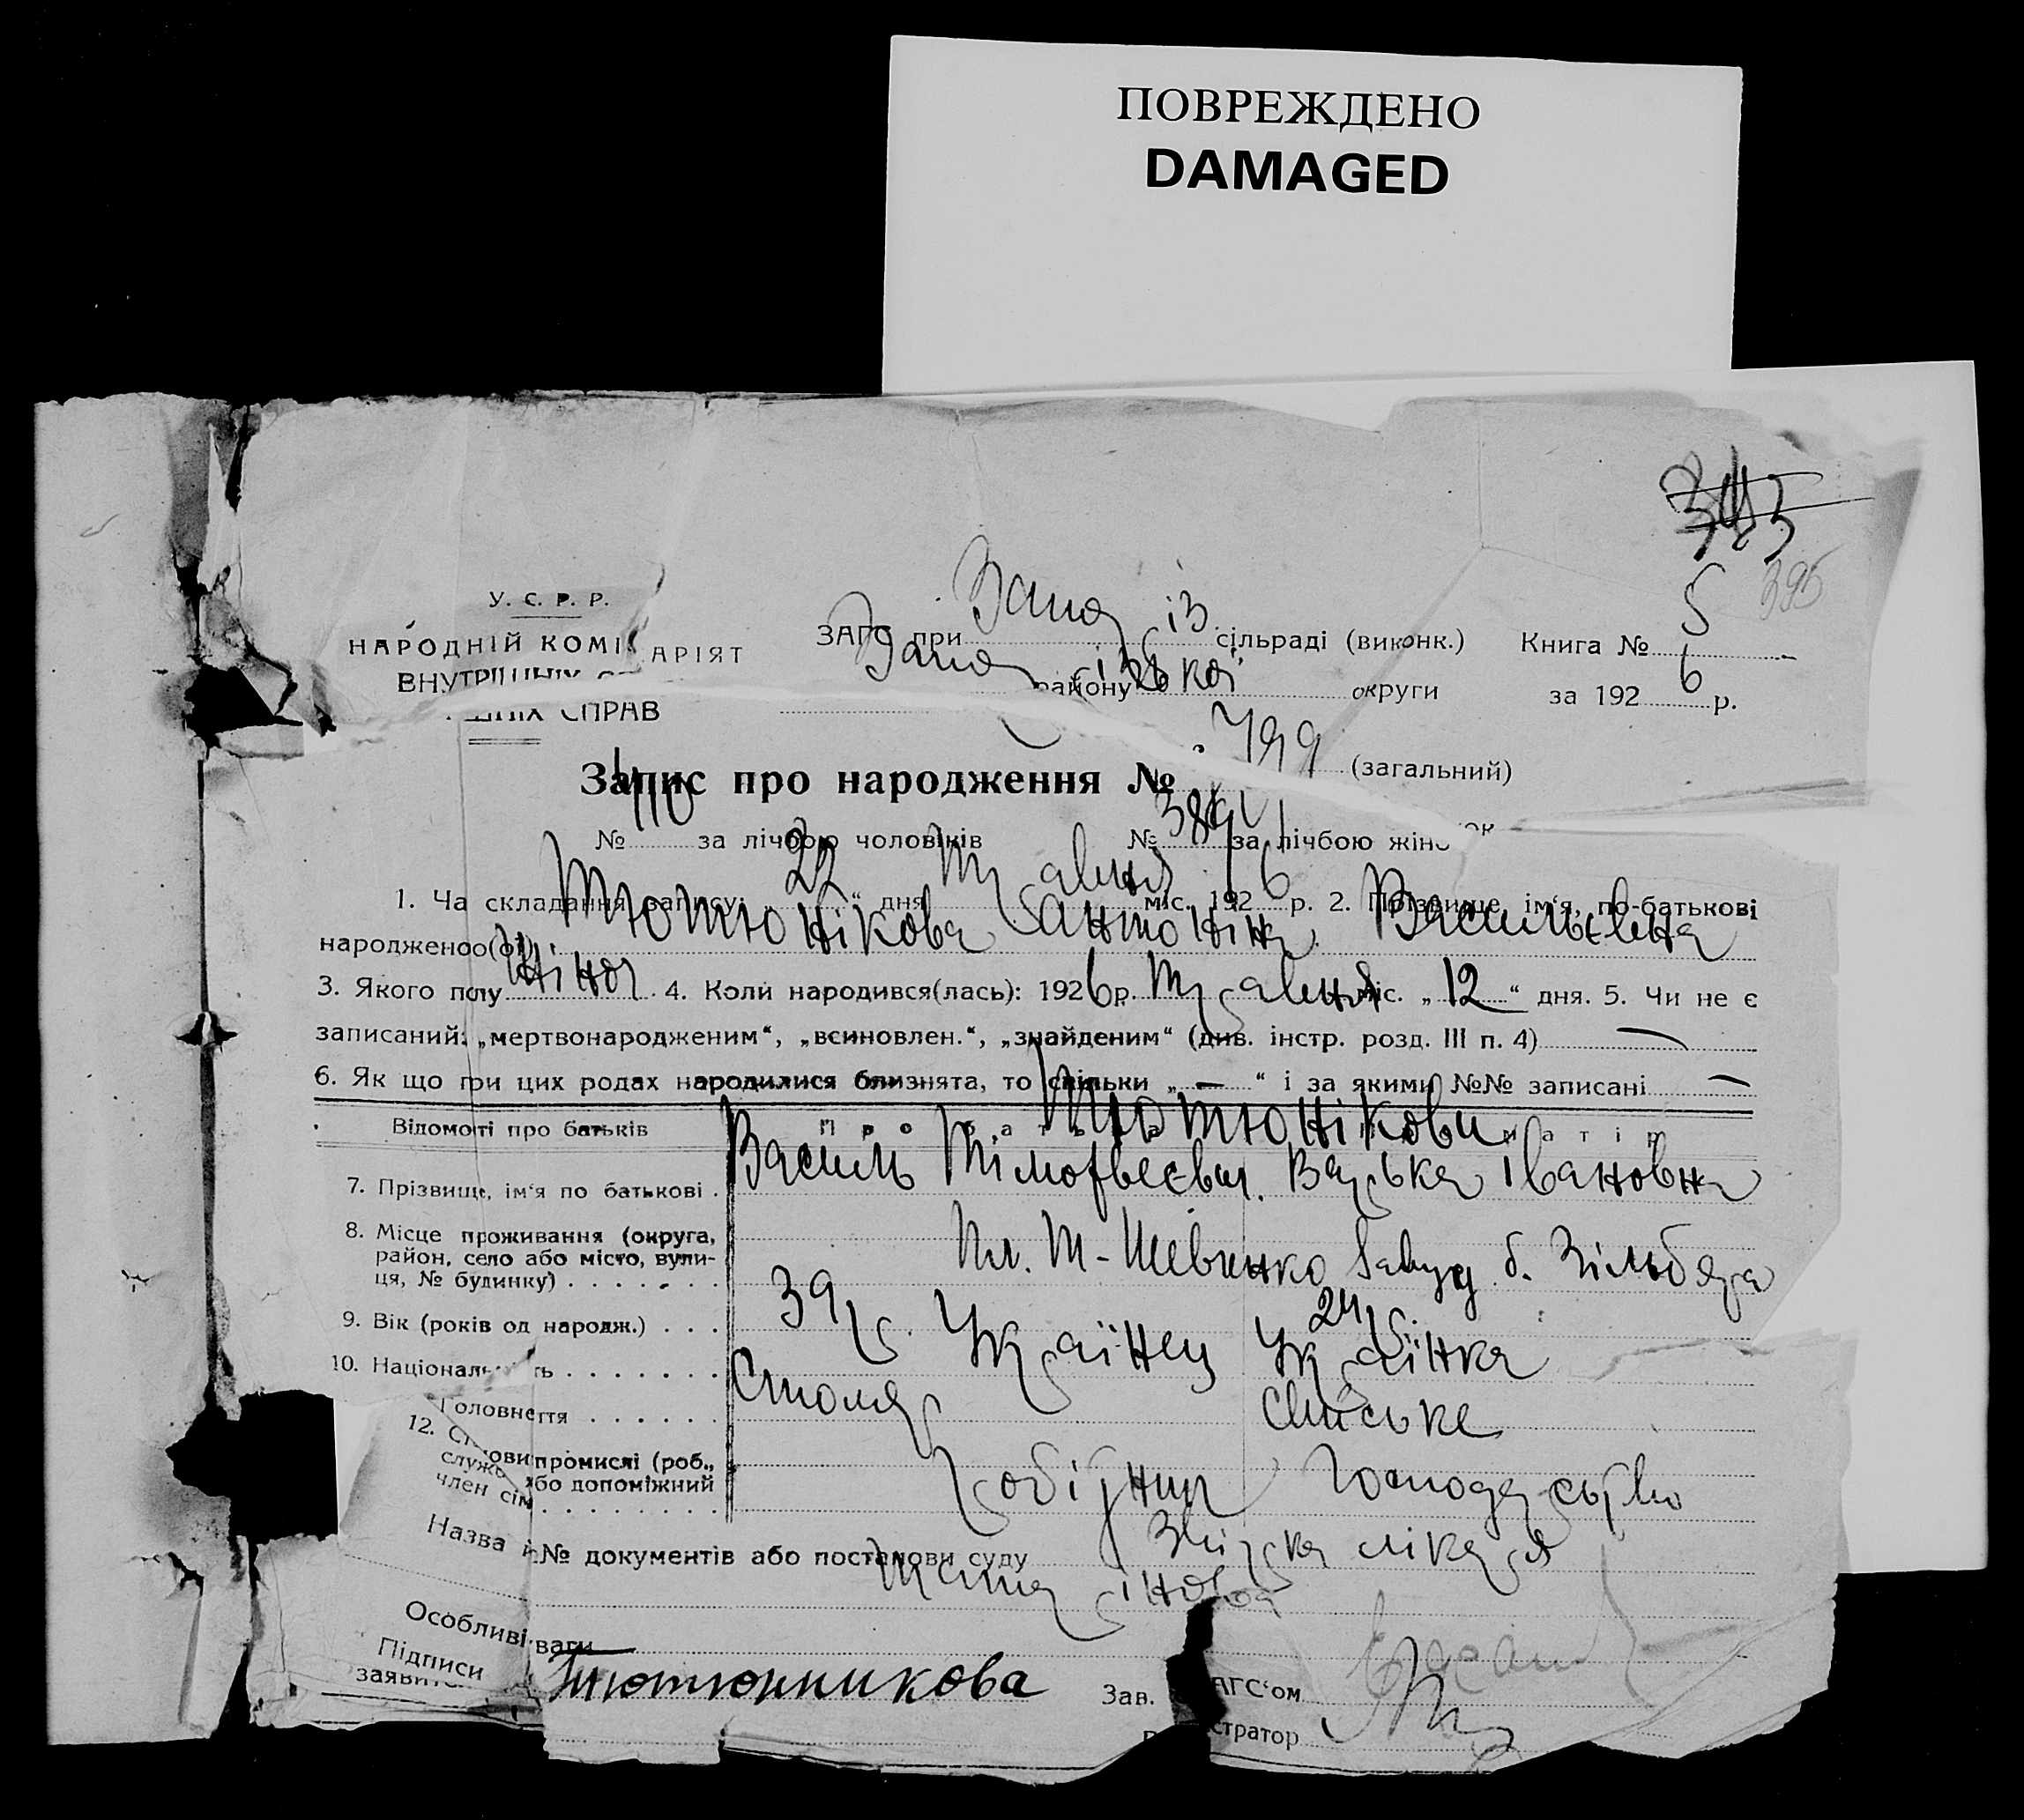 ПОВРЕЖДЕНО
DAMAGED
5 395
У. С. Р. Р.
НАРОДНІЙ КОМІСАРІЯТ
ВНУТРІШНІХ СПРАВ
ЗАГС при Запор із сільраді (виконк.) Книга № 5
Запорізької району округи за 1926 р.
Запис про народження № 799 (загальний)
№ 410 за лічбою чоловіків № 389 за лічбою жінок
1. Час складання запису: „22“ дня Травня міс. 1926 р. 2. Прізвище, ім‘я, по-батькові
народженого(ої) Тютюнікова Антоніна Васильєвна
3. Якого полу Жіноч. 4. Коли народився(лась): 1926 р. Травня міс. „12“ дня. 5. Чи не є
записаний: „мертвонародженим“, „всиновлен.“, „знайденим“ (див. інстр. розд. III п. 4) —
6. Як що при цих родах народилися близнята, то скільки „—“ і за якими №№ записані —
Відомості про батьків Про батька матір
Тютюнікови
7. Прізвище, ім‘я по батькові . Василь Тімофьеєвич. Варька Івановна
8. Місце проживання (округа,
район, село або місто, вули-
ця, № будинку) . . . . . . . Пл. Т-Шевченко завуд б. Зільбера
9. Вік (років од народж.) . . . 39 р. 24 р.
10. Національність . . . . . . . Українець Українка
Головне життя . . . . . . Столяр Сільське
12. Становищ промислі (роб.,
служб. або допоміжний
член сім . . . . . . . . . робітник господарство
Назва і № документів або постанови суду Звірка лікаря
Особливі уваги —
Підписи
заявит Тютюнникова Зав. ЗАГС‘ом
Реєстратор